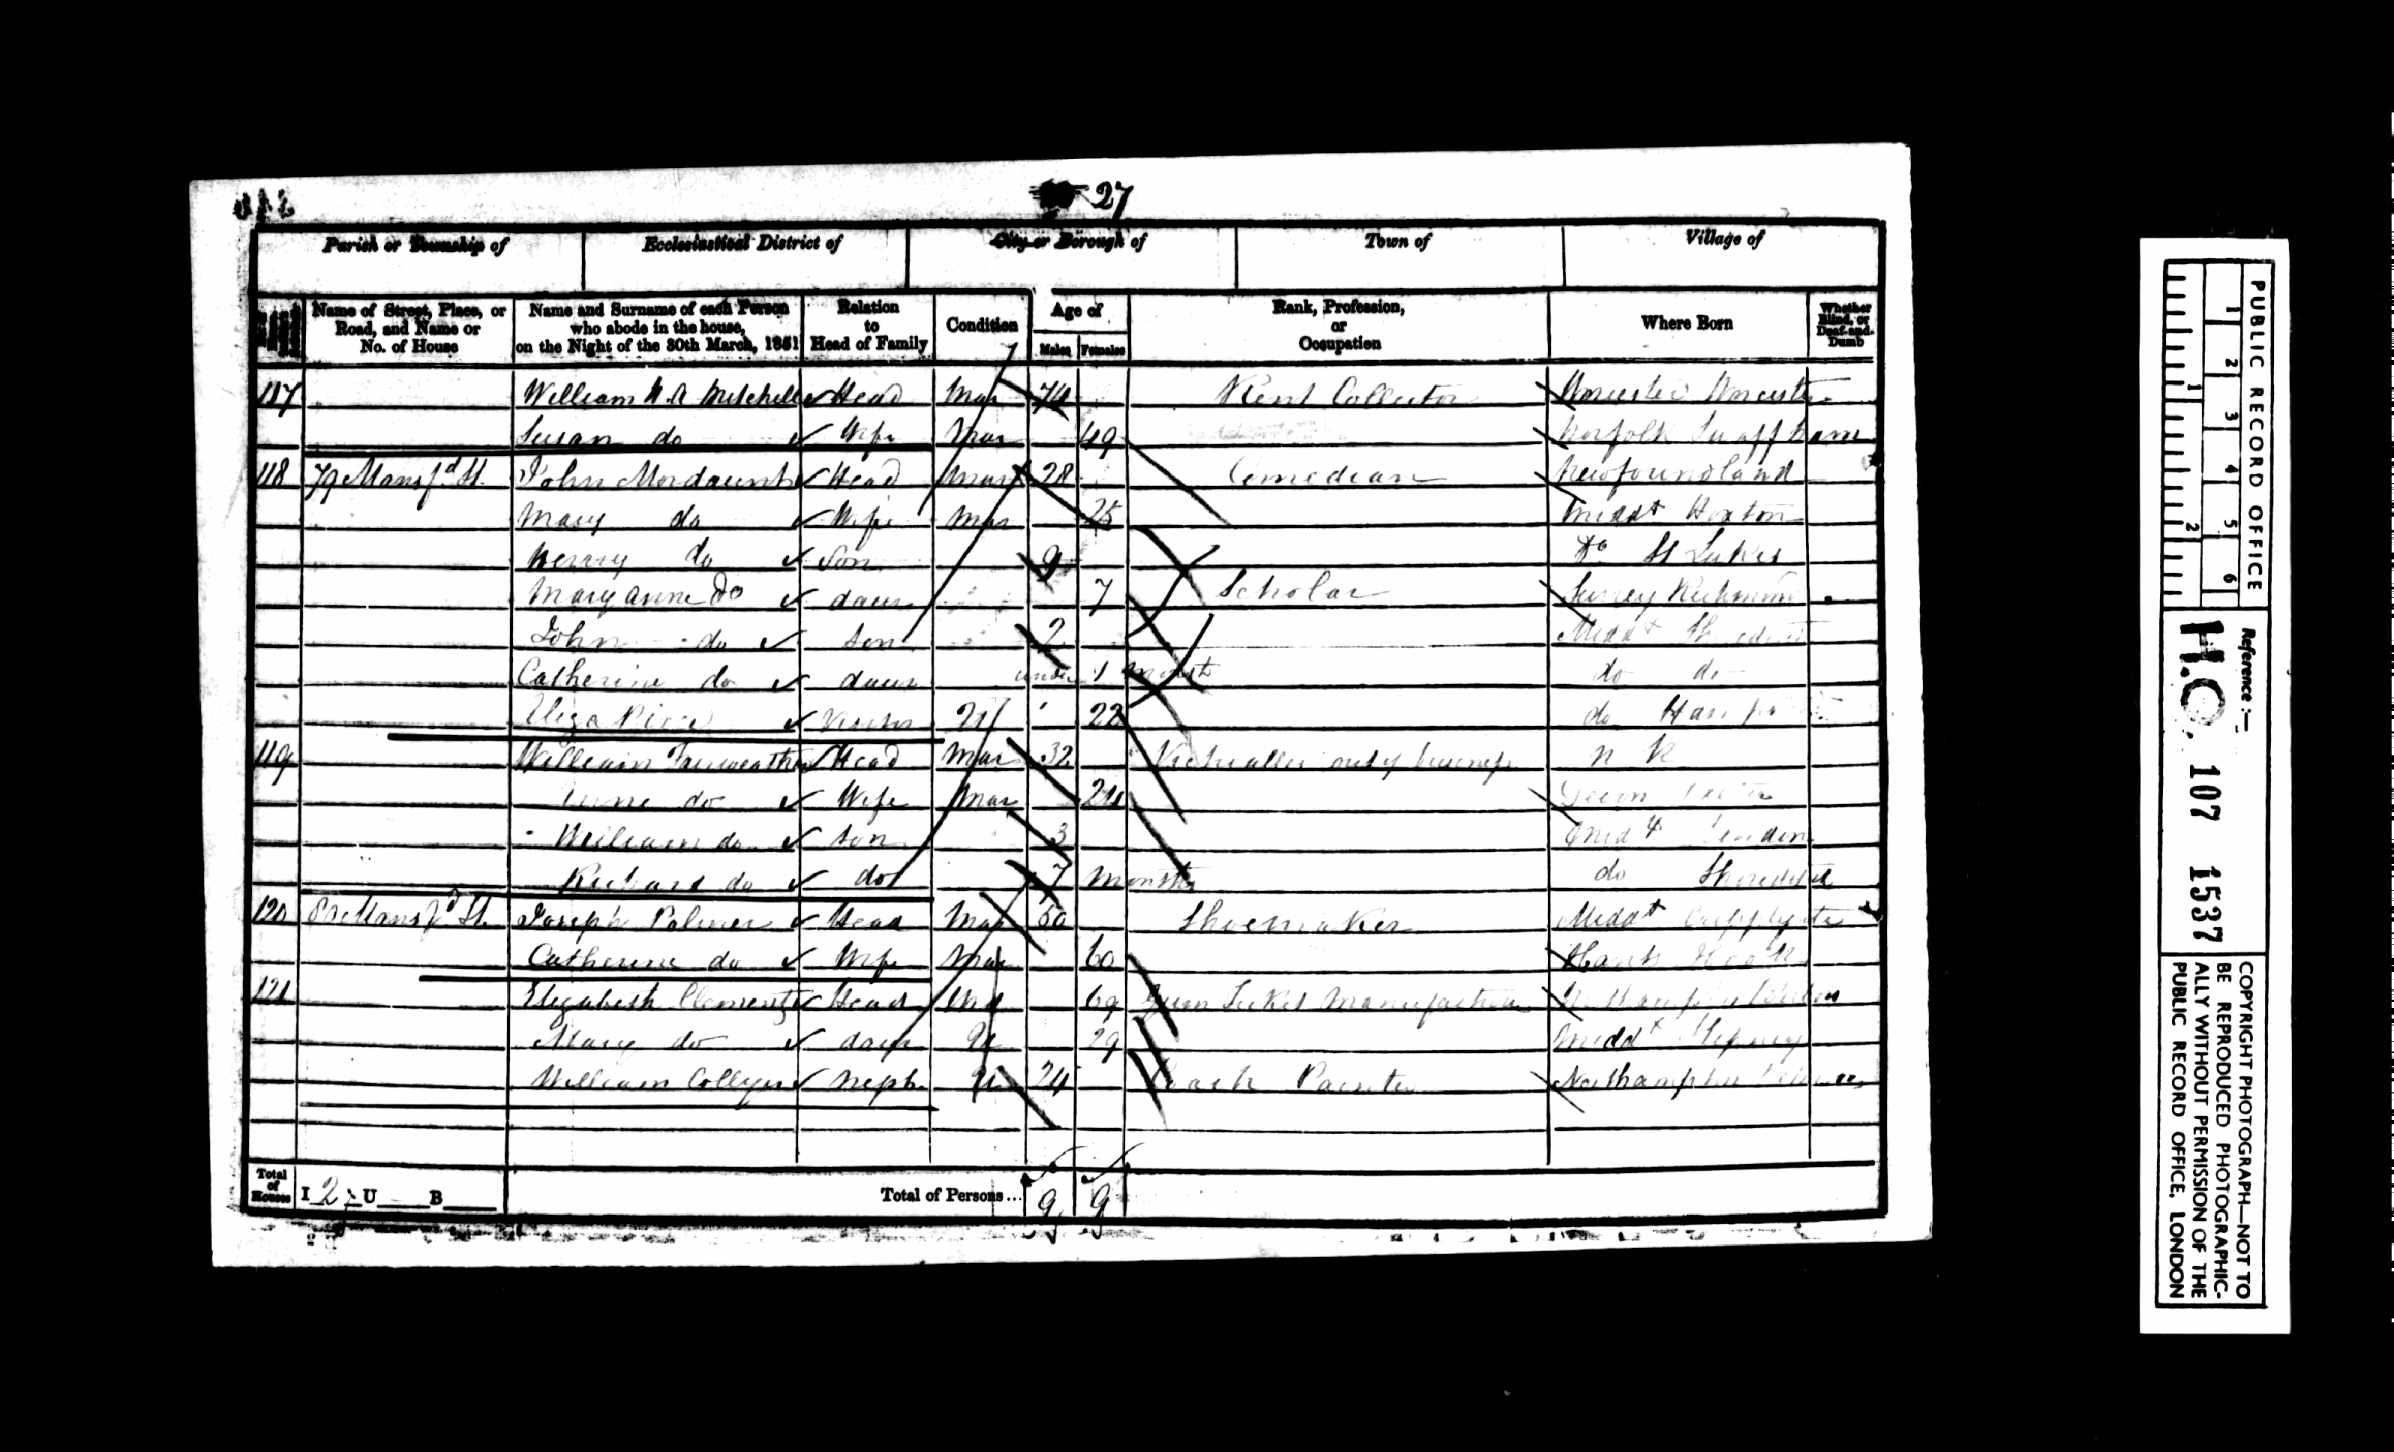 27
Parish or Township of Ecclesiastical District of City or Borough of Town of Village of
Name of Street, Place, or Road, and Name or No. of House
Name and Surname of each Person who abode in the house, on the Night of the 30th March, 1851
Relation to Head of Family
Condition
Age of
Males Females
Rank, Profession, or Occupation
Where Born
Whether Blind, or Deaf-and-Dumb
117 William Mitchell Head Mar 74 Rent Collector Worcester Worcester
Susan do Wife Mar 49 Norfolk Swaffham
118 79 Mansfd St. John Mordaunt Head Mar 28 Comedian Newfoundland
Mary do Wife Mar 25 Middt Hoxton
Henry do Son 9 Do St Lukes
Mary Anne Do daur 7 Scholar Surrey Richmond
John do son 2 Middt
Catherine do daur under 1 month do do
Eliza Visitor U 22 do
119 William Fairweather Head Mar 32 Victualler out of business n k
Anne do Wife Mar 24
William do son 3 Midd
Richard do do 7 Months do Shoreditch
120 80 Mansfd St. Joseph Palmer Head Mar 60 Shoemaker Middt
Catherine do Wife Mar 60 Hants
121 Elizabeth Clements Head 69
Mary do daur U 29 Middt Stepney
William Collyer Neph U 24 Painter Northampton
Total of Houses I 2 U B Total of Persons... 9 9
PUBLIC RECORD OFFICE
1 2 3 4 5 6
1 2
Reference:—
H.O. 107 1537
COPYRIGHT PHOTOGRAPH—NOT TO BE REPRODUCED PHOTOGRAPHIC-ALLY WITHOUT PERMISSION OF THE PUBLIC RECORD OFFICE, LONDON